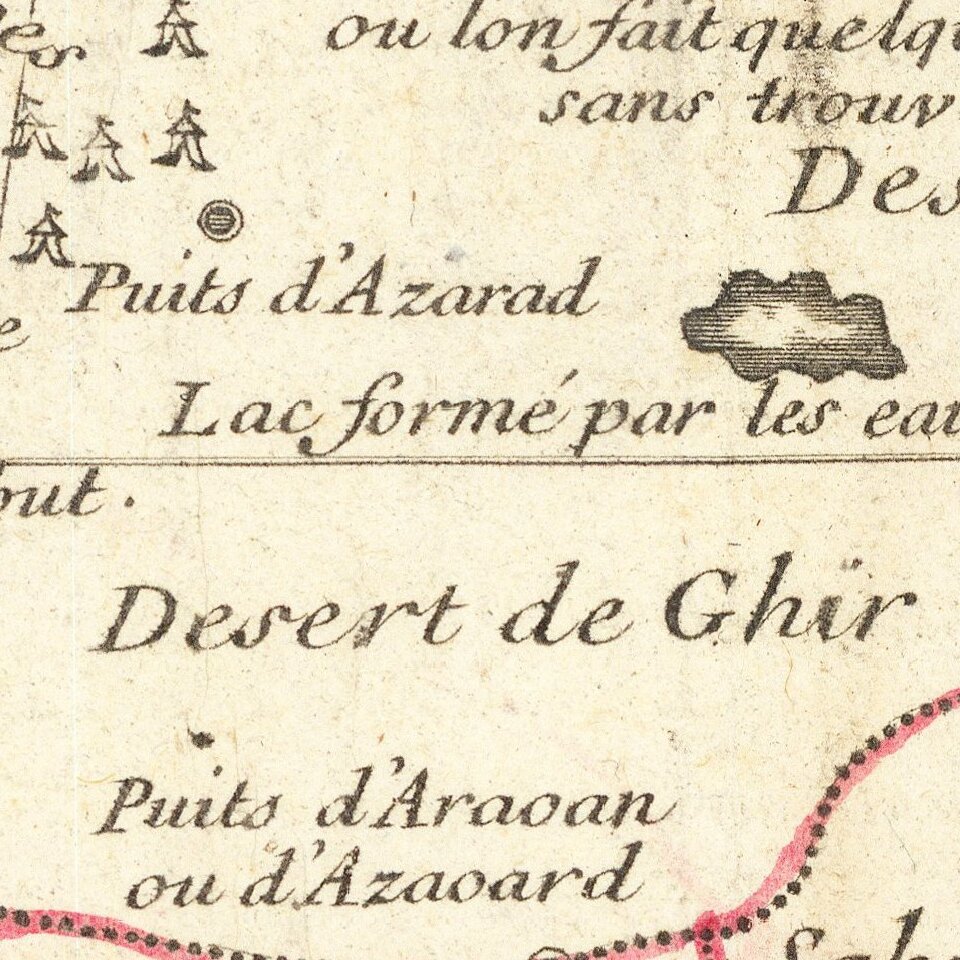 ou lon fait quelq
sans trouv
Des
Puits d'Azarad
Lac formé par les eau
but.
Desert de Ghir
Puits d'Araoan
ou d'Azaoard